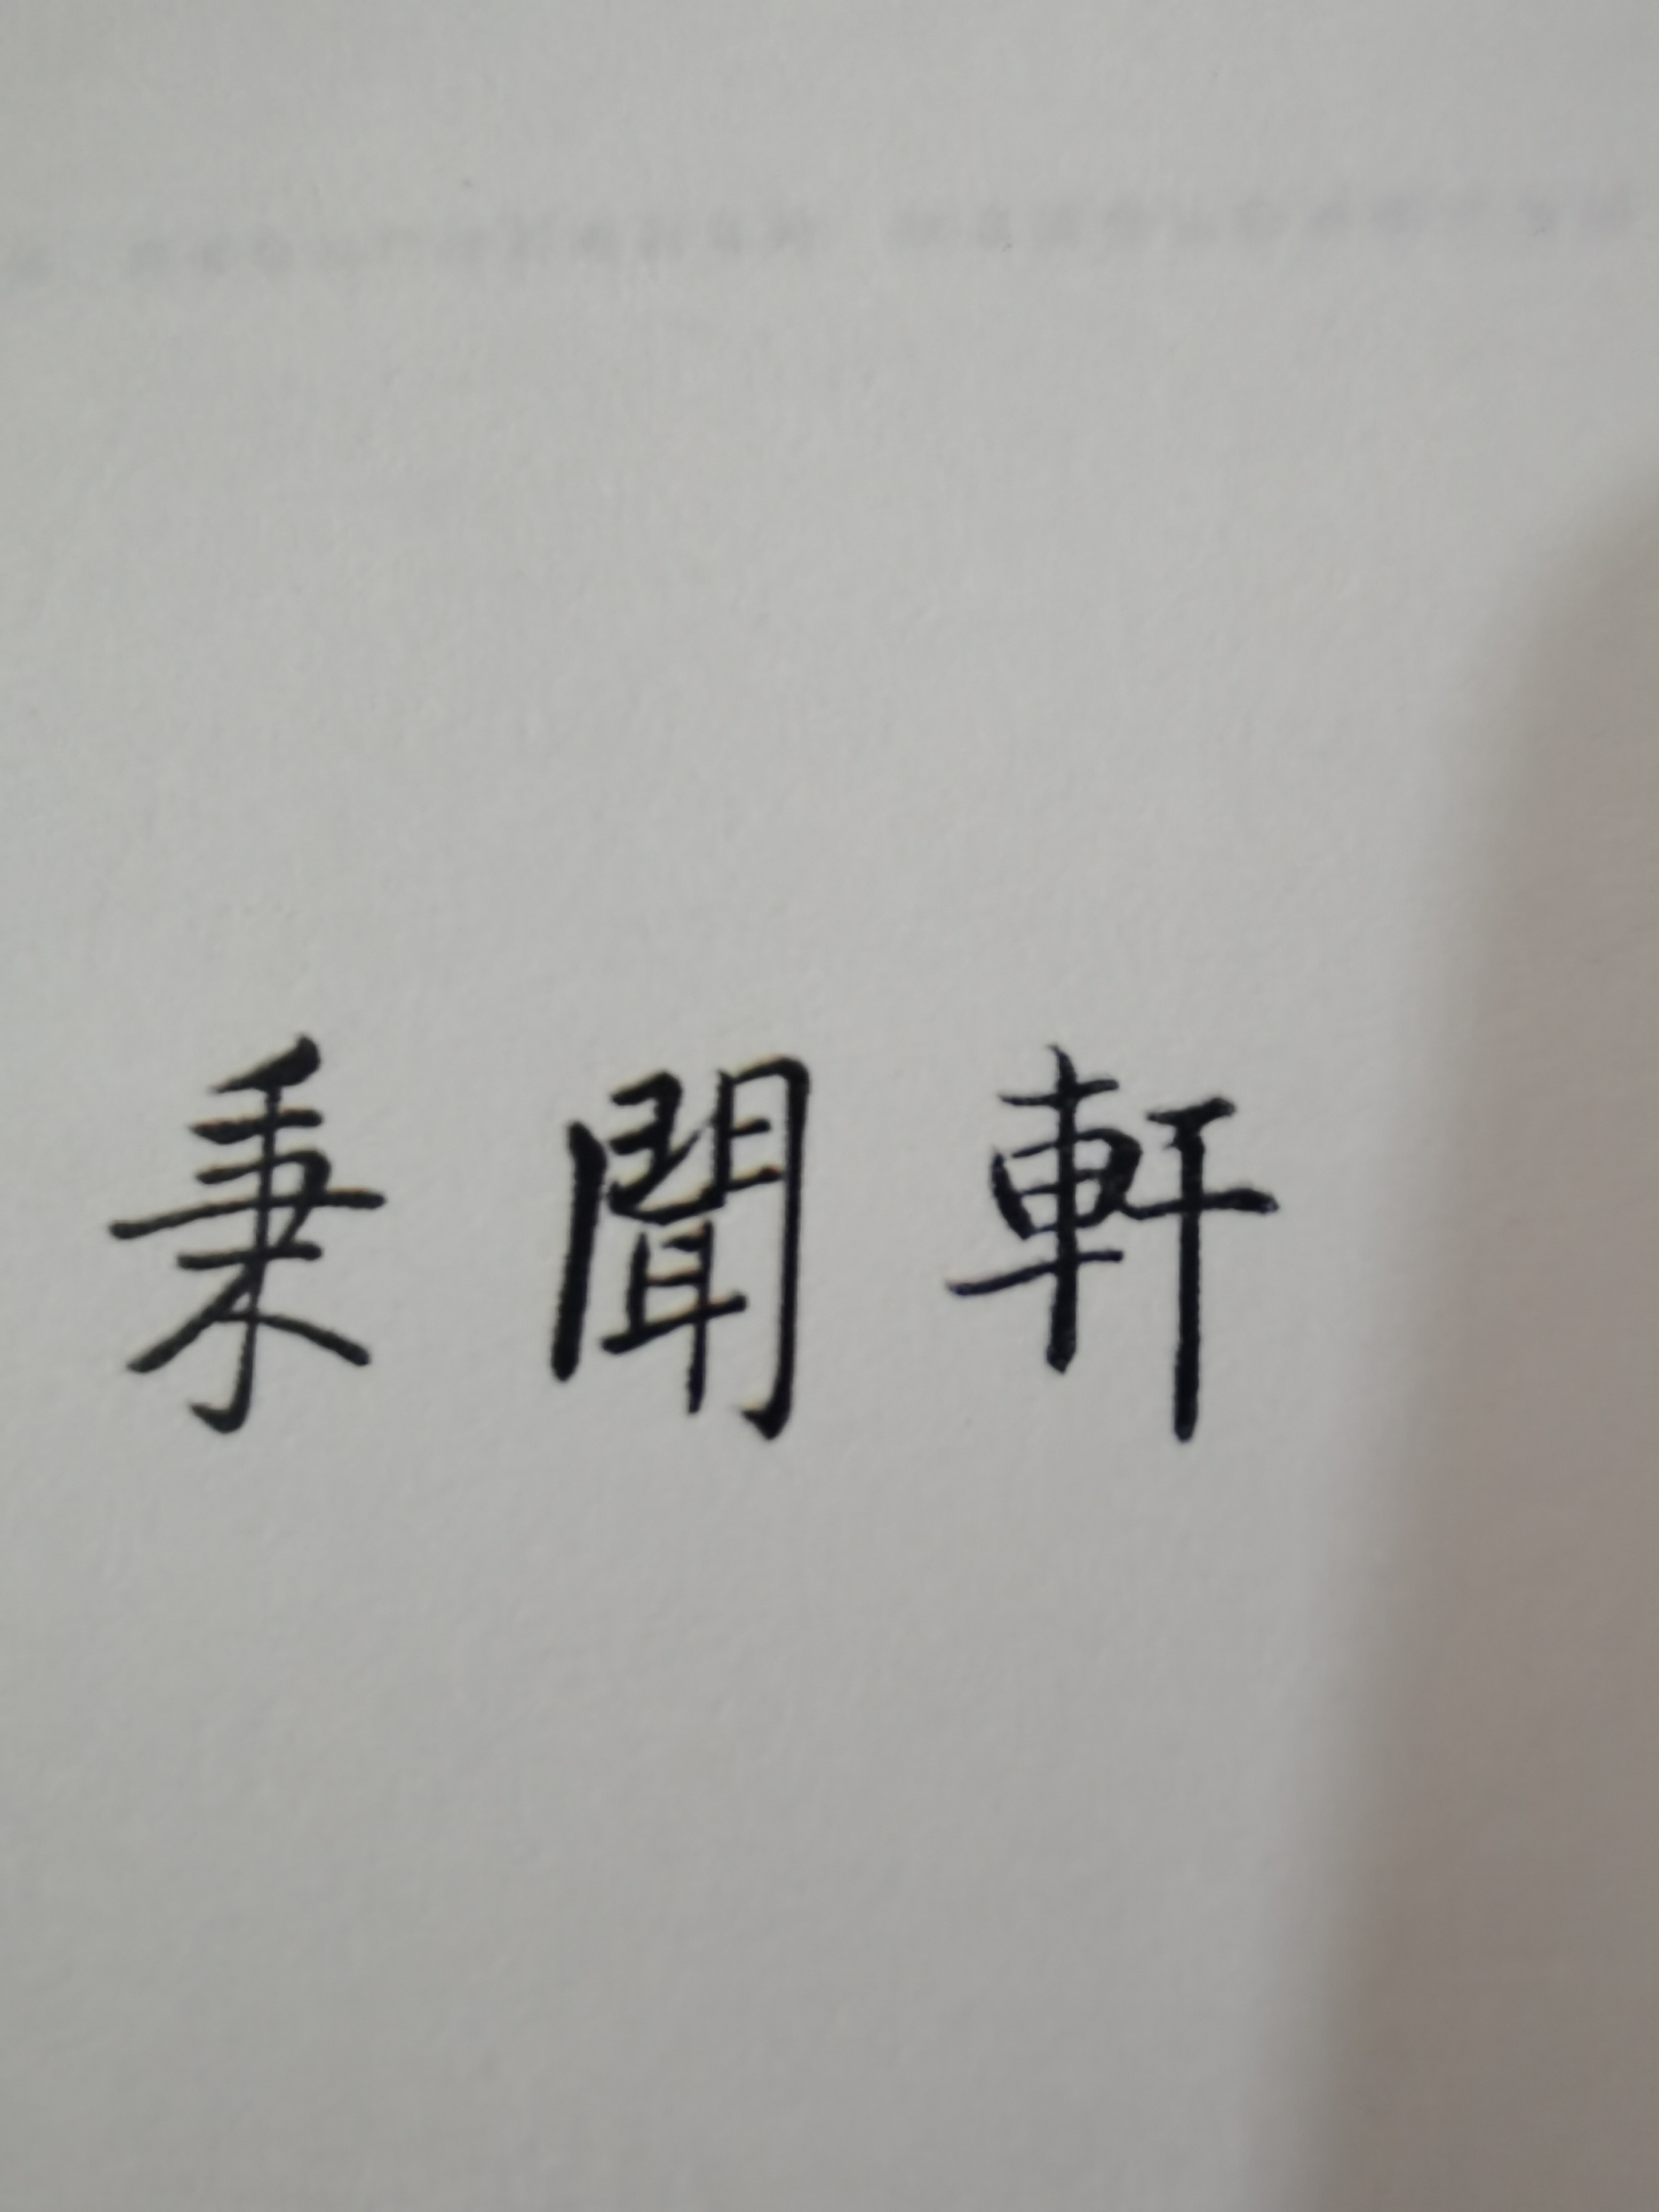 秉聞軒